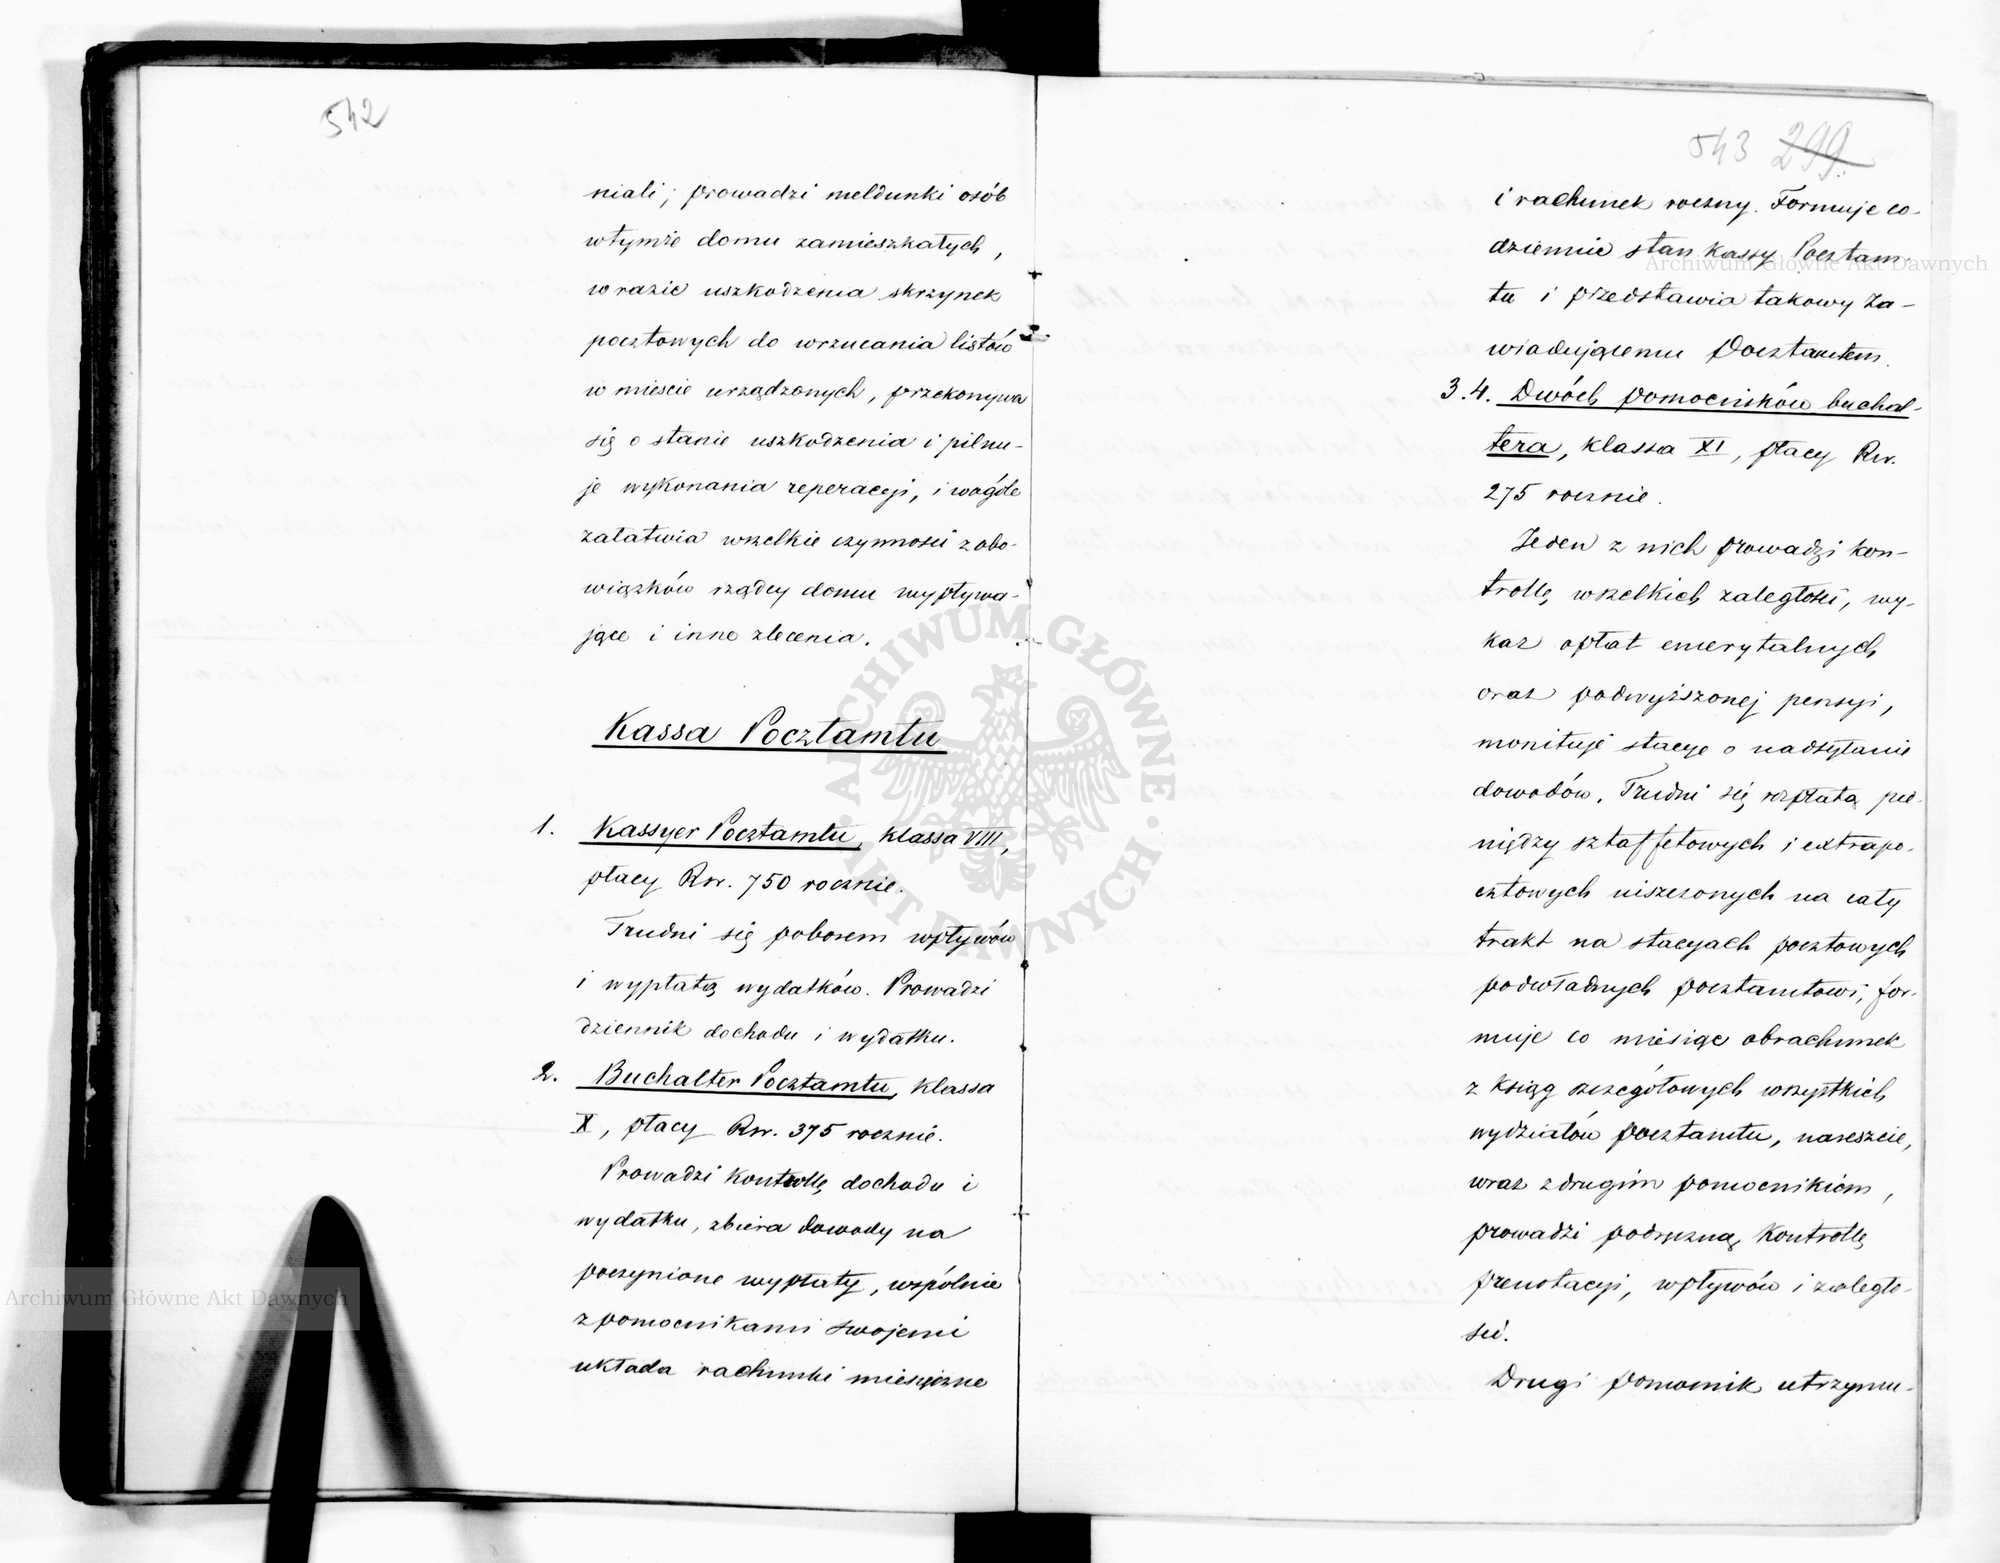 542
niali; prowadzi meldunki osób
wtymże domu zamieszkałych,
w razie uszkodzenia skrzynek
pocztowych do wrzucania listów
w mieście urządzonych, przekonywa
się o stanie uszkodzenia i pilnu-
je wykonania reperacyi, i wogóle
załatwia wszelkie czynności z obo-
wiązków rządcy domu wypływa-
jące i inne zlecenia.
Kassa Pocztamtu
1. Kassyer Pocztamtu, klassa VIII,
płacy Rsr. 750 rocznie.
Trudni się poborem wpływów
i wypłatą wydatków. Prowadzi
dziennik dochodu i wydatku.
2. Buchalter Pocztamtu, klassa
X, płacy Rsr. 375 rocznie.
Prowadzi kontrollę dochodu i
wydatku, zbiera dowody na
poczynione wypłaty, wspólnie
z pomocnikami swojemi
układa rachunki miesięczne
543 299.
i rachunek roczny. Formuje co-
dziennie stan kassy Pocztam-
tu i przedstawia takowy Za-
wiadującemu Pocztamtem.
3.4. Dwóch pomocników buchal-
tera, klassa XI, płacy Rsr.
275 rocznie.
Jeden z nich prowadzi kon-
trollę wszelkich zaległości, wy-
kaz opłat emerytalnych
oraz podwyższonej pensyi,
monituje stacye o nadsyłanie
dowodów. Trudni się wypłatą pie-
niędzy sztaffetowych i extrapo-
cztowych uiszczonych na cały
trakt na stacyach pocztowych
podwładnych pocztamtowi, for-
muje co miesiąc obrachunek
z ksiąg szczegółowych wszystkich
wydziałów pocztamtu, nareszcie,
wraz z drugim pomocnikiem,
prowadzi podręczną kontrollę
prenotacyi, wpływów i zaległo-
ści.
Drugi pomocnik utrzymu-
Archiwum Główne Akt Dawnych
Archiwum Główne Akt Dawnych
ARCHIWUM GŁÓWNE AKT DAWNYCH